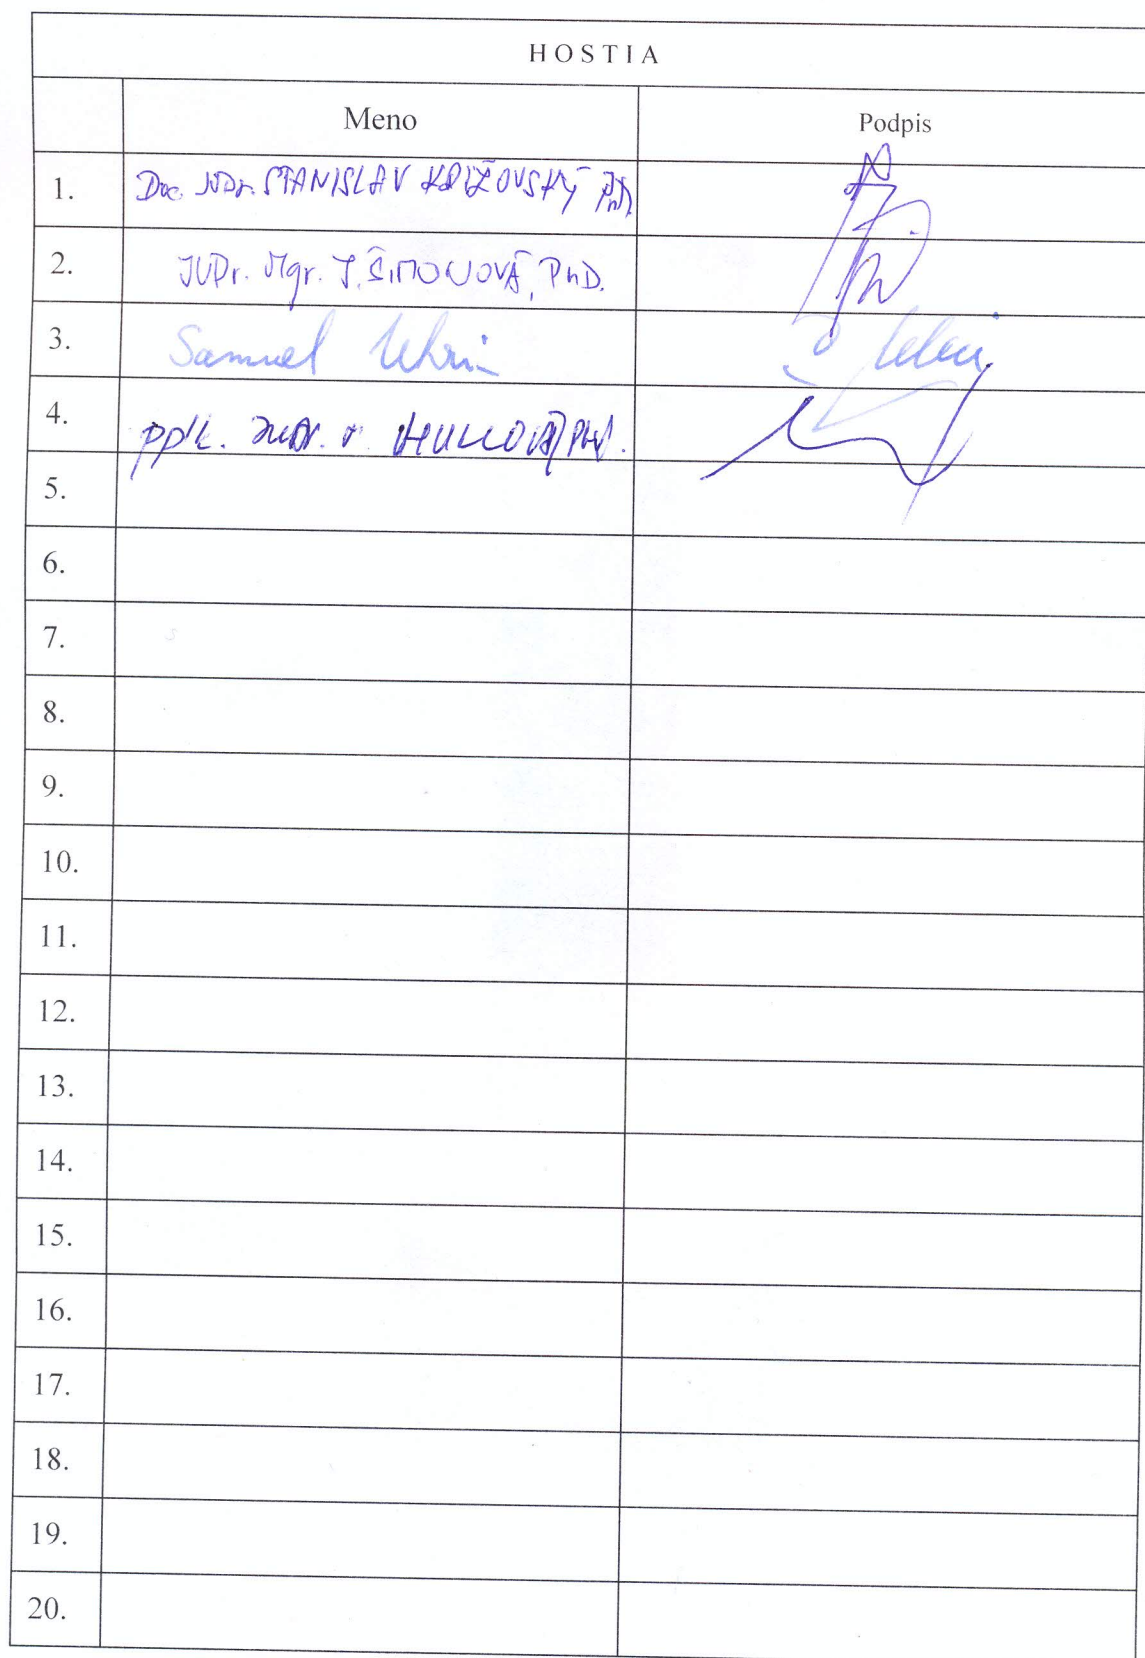 HOSTIA
Meno Podpis
1. Doc. JUDr. STANISLAV KRIŽOVSKÝ PhD.
2. JUDr. Mgr. J. ŠIMONOVÁ, PhD.
3. Samuel
4. pplk. JUDr. PhD.
5.
6.
7.
8.
9.
10.
11.
12.
13.
14.
15.
16.
17.
18.
19.
20.